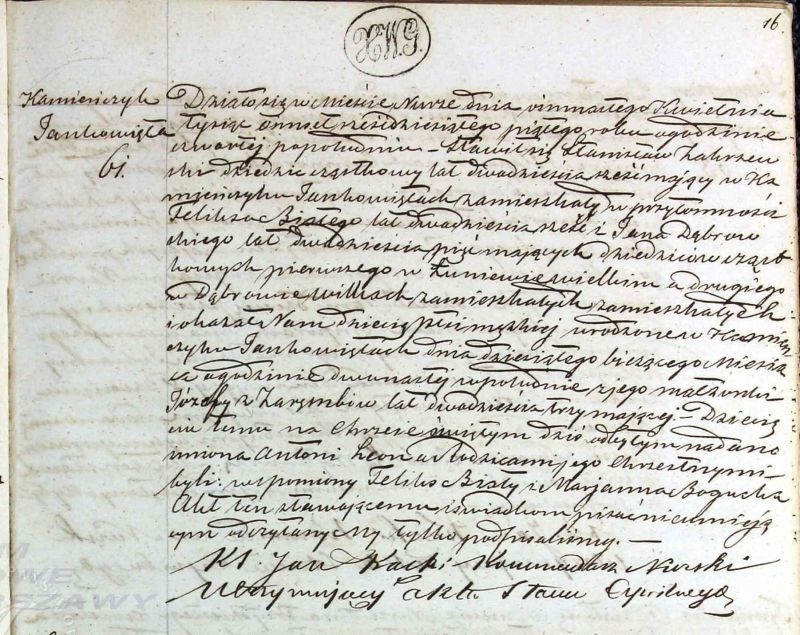 16.
X.W.G.
Kamieńczyk
Jankowięta
61.
Działo się w Mieście Nurze dnia Kwietnia
tysiąc ośmset sześćdziesiątego piątego roku o godzinie
czwartej popołudniu – Stawił się Stanisław Zakrzew
ski dziedzic cząstkowy lat dwadzieścia sześć mający w Ka
mieńczyku Jankowiętach zamieszkały w przytomności
Feliksa Białego lat dwadzieścia sześć i Jana Dąbrow
skiego lat dwadzieścia pięć mających dziedziców cząst
kowych pierwszego w Łuniewie wielkim a drugiego
w Dąbrowie Wilkach zamieszkałych zamieszkałych
i okazał Nam dziecię płci męzkiej urodzone w Kamień
czyku Jankowiętach dnia dziesiątego bieżącego Miesią
ca o godzinie dwunastej w południe z jego małżonki
Józefy z Zarembów lat dwadzieścia trzy mającej – Dziecię
ciu temu na Chrzcie świętym dziś odbytym nadano
imiona Antoni Leon a Rodzicami jego Chrzestnymi
byli: wspomiony Feliks Biały i Marjanna Bogucka
Akt ten stawającemu i świadkom pisać nieumieją
cym odczytany My tylko podpisaliśmy. –
Kś. Jan Kacki Kommendarz Nurski
Utrzymujący akta Stanu Cywilnego